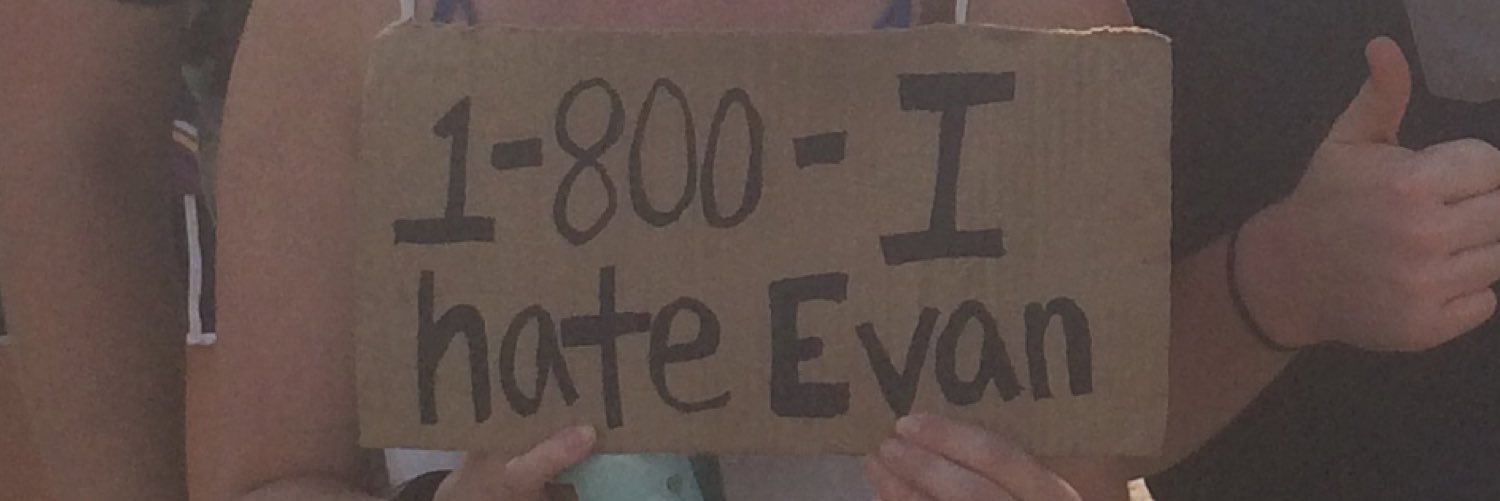 1-800-I
hate Evan